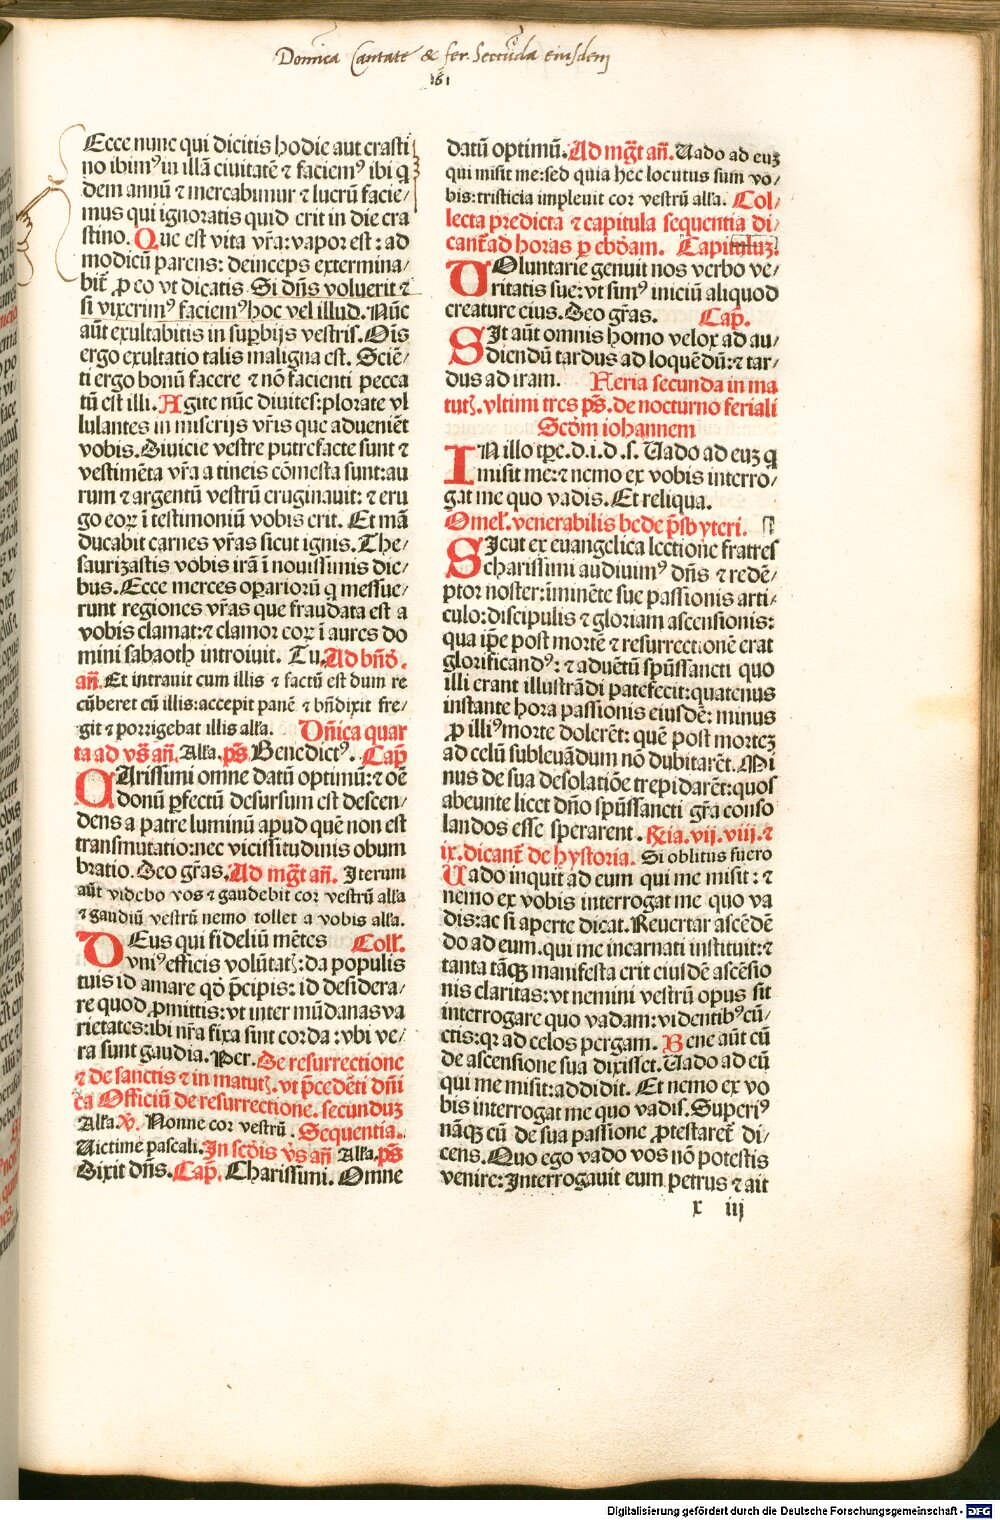 Domīca Cantate & fer. Secūda eiusdem
161
Ecce nunc qui dicitis hodie aut crasti
no ibimꝰ in illā civitatē ⁊ faciemꝰ ibi q̇
dem annū ⁊ mercabimur ⁊ lucrū facie/
mus qui ignoratis quid erit in die cra
stino. Que est vita vr̄a: vapor est: ad
modicū parens: deinceps extermina/
bit̄ ꝓ eo vt dicatis. Si dn̄s voluerit ⁊
si vixerimꝰ faciemꝰ hoc vel illud. Nūc
aūt exultabitis in suꝑbijs vestris. Ois
ergo exultatio talis maligna est. Sciē/
ti ergo bonū facere ⁊ nō facienti pecca
tū est illi. Agite nūc divites: plorate vl
lulantes in miserijs vr̄is que advenient
vobis. Divicie vestre putrefacte sunt ⁊
vestimēta vr̄a a tineis cōmesta sunt: au
rum ⁊ argentū vestrū eruginauit: ⁊ eru
go eoꝝ ī testimoniū vobis erit. Et mā
ducabit carnes vr̄as sicut ignis. The/
saurizastis vobis irā ī novissimis die/
bus. Ecce merces oꝑarioꝛū q messue/
runt regiones vr̄as que fraudata est a
vobis clamat: ⁊ clamor eoꝝ ī aures do
mini sabaoth introiuit. Tu. Ad bn̄d̄.
an̄. Et intrauit cum illis ⁊ factū est dum re
cūberet cū illis: accepit panē ⁊ bn̄dixit fre/
git ⁊ porrigebat illis all'a. Dn̄ica quar
ta ad vs̄ an̄. All'a. ps̄. Benedictꝰ. Cap̄
CArissimi omne datū optimū: ⁊ oē
donū ꝑfectū desursum est descen/
dens a patre luminū apud quē non est
transmutatio: nec vicissitudinis obum
bratio. Deo gr̄as. Ad mḡt an̄. Iterum
aūt videbo vos ⁊ gaudebit cor vestrū all'a
⁊ gaudiū vestrū nemo tollet a vobis all'a.
DEus qui fideliū mētes Coll'.
vniꝰ efficis volūtat̄: da populis
tuis id amare qd̄ p̄cipis: id desidera/
re quod ꝓmittis: vt inter mūdanas va
rietates: ibi nr̄a fixa sint corda: vbi ve/
ra sunt gaudia. Per. De resurrectione
⁊ de sanctis ⁊ in matut̄. vt p̄cedēti dn̄i
ca Officiū de resurrectione. secunduꝫ
All'a. V̄. Nonne cor vestrū. Sequentia.
Victime pascali. In scd̄is v̄s an̄ All'a. ps̄
Dixit dn̄s. Cap̄. Charissimi. Omne
datū optimū. Ad mḡt an̄. Vado ad euꝫ
qui misit me: sed quia hec locutus sum vo/
bis: tristicia implevit cor vestrū all'a. Col/
lecta predicta ⁊ capitula sequentia di/
cant̄ ad horas ꝑ ebd̄am. Capituluꝫ.
VOluntarie genuit nos verbo ve/
ritatis sue: vt simꝰ iniciū aliquod
creature eius. Deo gr̄as. Cap̄.
SIt aūt omnis homo velox ad au/
diendū tardus ad loquēdū: ⁊ tar/
dus ad iram. Feria secunda in ma
tut̄. vltimi tres ps̄. de nocturno feriali
Scd̄m iohannem
IN illo tp̄e. d. i. d. s. Vado ad euꝫ q
misit me: ⁊ nemo ex vobis interro/
gat me quo vadis. Et reliqua.
Omel'. venerabilis bede p̄sbyteri.
SIcut ex euangelica lectione fratres
charissimi audiuimꝰ dn̄s ⁊ redē/
ptor noster: iminēte sue passionis arti/
culo: discipulis ⁊ gloriam ascensionis:
qua ip̄e post mortē ⁊ resurrectionē erat
glorificandꝰ: ⁊ aduētū spūssancti quo
illi erant illustrādi patefecit: quatenus
instante hora passionis eiusdē: minus
ꝓ illiꝰ morte dolerēt: quē post morteꝫ
ad celū subleuādum nō dubitarēt. Mi
nus de sua desolatiōe trepidarēt: quos
abeunte licet dn̄o spūssancti gr̄a conso
landos esse sperarent. R̄ia. vij. viij. ⁊
ix. dicant̄ de hystoria. Si oblitus fuero
Vado inquit ad eum qui me misit: ⁊
nemo ex vobis interrogat me quo va
dis: ac si aperte dicat. Revertar ascēdē
do ad eum. qui me incarnati instituit: ⁊
tanta tāqꝫ manifesta erit eiusdē ascēsio
nis claritas: vt nemini vestrū opus sit
interrogare quo vadam: videntibꝰ cū/
ctis: qꝛ ad celos pergam. Bene aūt cū
de ascensione sua dixisset. Vado ad eū
qui me misit: addidit. Et nemo ex vo
bis interrogat me quo vadis. Superiꝰ
nāqꝫ cū de sua passione ꝓtestaret̄ di/
cens. Quo ego vado vos nō potestis
venire: Interrogauit eum petrus ⁊ ait
x iij
Digitalisierung gefördert durch die Deutsche Forschungsgemeinschaft - DFG